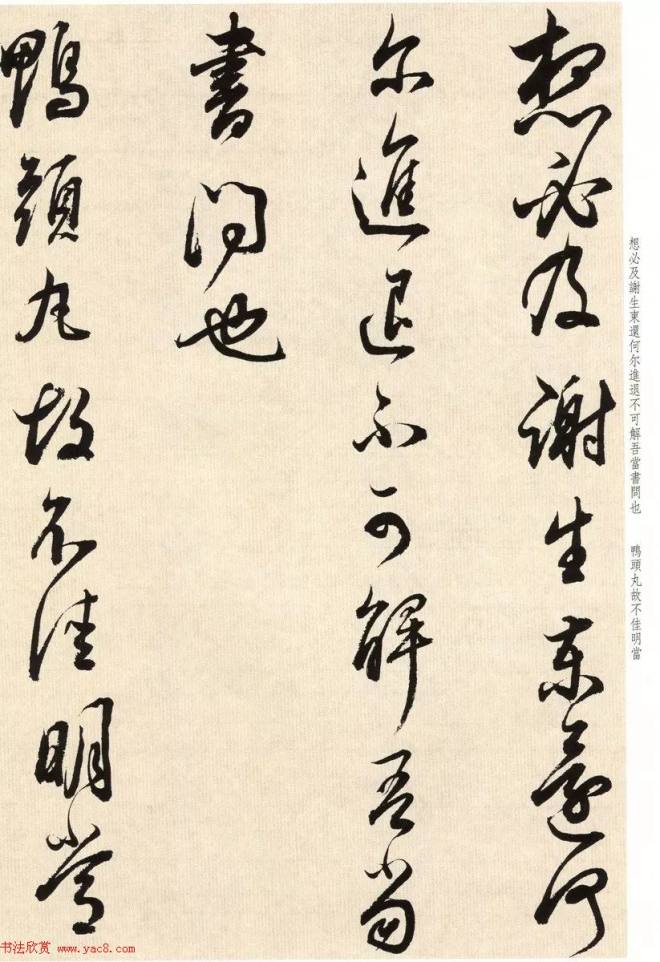 想必及謝生東還何
尔進退不可解吾當
書問也
鴨頭丸故不佳明當
想必及謝生東還何尔進退不可解吾當書問也　鴨頭丸故不佳明當
书法欣赏 www.yac8.com